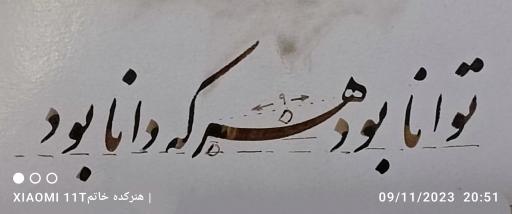 توانا بود هر که دانا بود
۹
XIAOMI 11T هنرکده خاتم |
09/11/2023 20:51